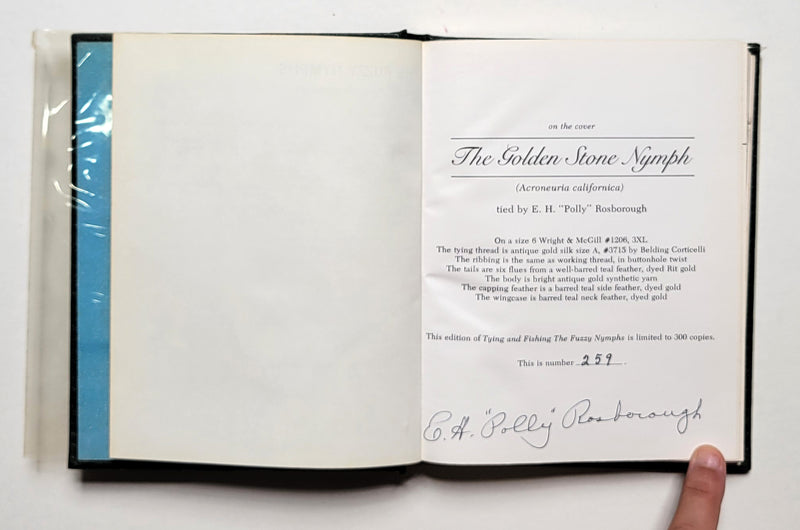 on the cover
The Golden Stone Nymph
(Acroneuria californica)
tied by E. H. "Polly" Rosborough
On a size 6 Wright & McGill #1206, 3XL
The tying thread is antique gold silk size A, #3715 by Belding Corticelli
The ribbing is the same as working thread, in buttonhole twist
The tails are six flues from a well-barred teal feather, dyed Rit gold
The body is bright antique gold synthetic yarn
The capping feather is a barred teal side feather, dyed gold
The wingcase is barred teal neck feather, dyed gold
This edition of Tying and Fishing The Fuzzy Nymphs is limited to 300 copies.
This is number 259.
E. H. "Polly" Rosborough